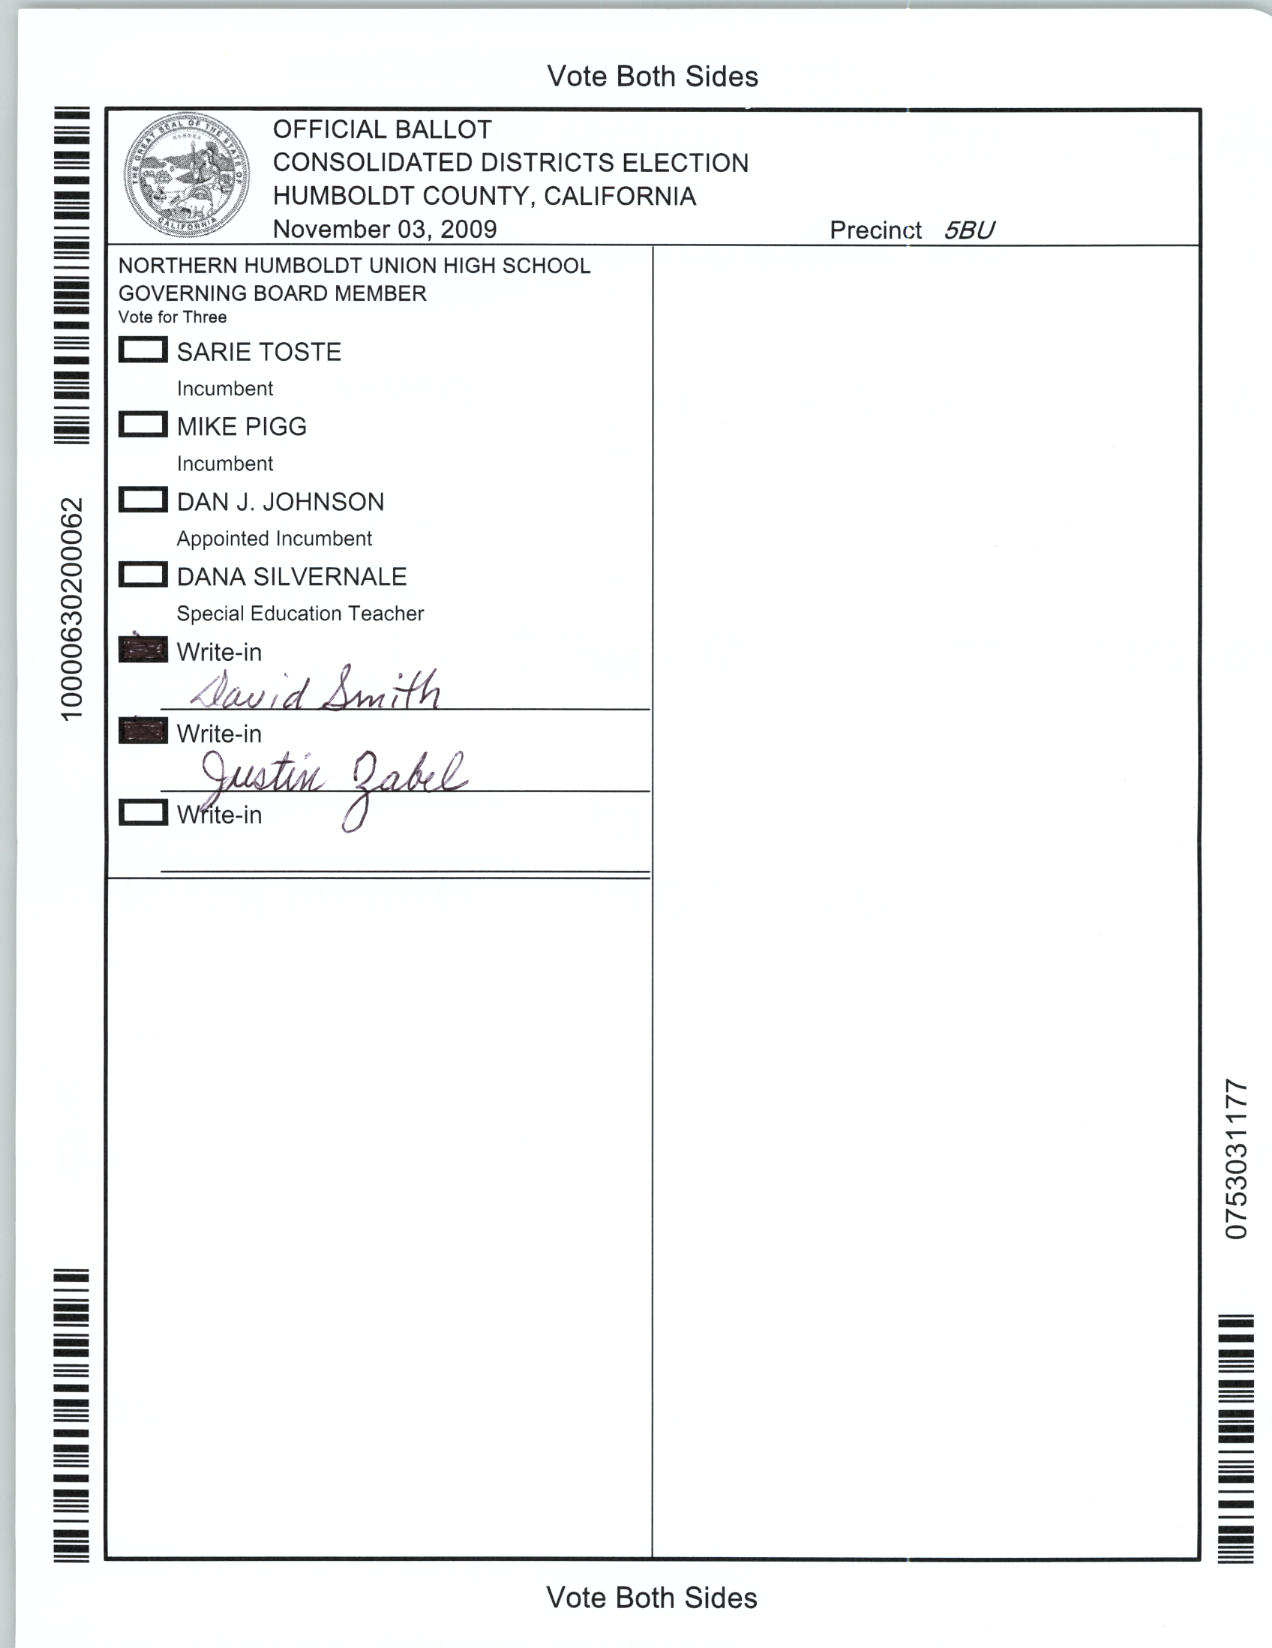 Vote Both Sides
THE GREAT SEAL OF THE STATE OF CALIFORNIA
EUREKA
OFFICIAL BALLOT
CONSOLIDATED DISTRICTS ELECTION
HUMBOLDT COUNTY, CALIFORNIA
November 03, 2009
Precinct 5BU
NORTHERN HUMBOLDT UNION HIGH SCHOOL
GOVERNING BOARD MEMBER
Vote for Three
SARIE TOSTE
Incumbent
MIKE PIGG
Incumbent
DAN J. JOHNSON
Appointed Incumbent
DANA SILVERNALE
Special Education Teacher
Write-in
David Smith
Write-in
Justin Zabel
Write-in
10000630200062
0753031177
Vote Both Sides